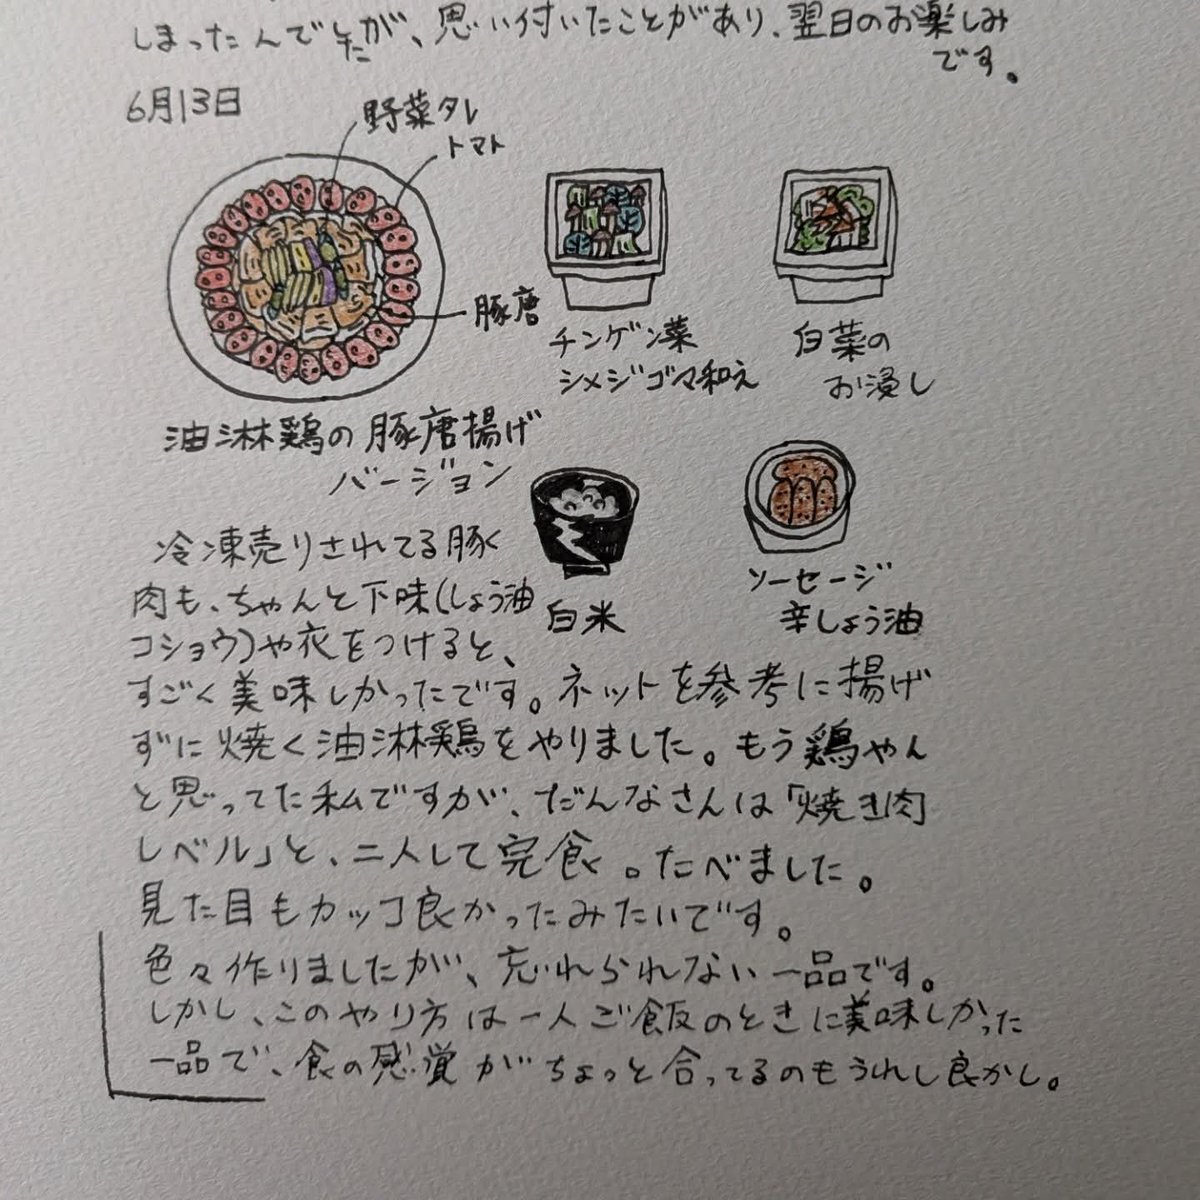 しまったんでたが、思い付いたことがあり、翌日のお楽しみ
です。
6月13日
野菜タレ
トマト
豚唐
油淋鶏の豚唐揚げ
バージョン
チンゲン菜
シメジゴマ和え
白菜の
お浸し
白米
ソーセージ
辛しょう油
冷凍売りされてる豚く
肉も、ちゃんと下味(しょう油
コショウ)や衣をつけると、
すごく美味しかったです。ネットを参考に揚げ
ずに焼く油淋鶏をやりました。もう鶏やん
と思ってた私ですが、だんなさんは「焼き肉
レベル」と、二人して完食。たべました。
見た目もカッコ良かったみたいです。
色々作りましたが、忘れられない一品です。
しかし、このやり方は一人ご飯のときに美味しかった
一品で、食の感覚がちょっと合ってるのもうれし良かし。